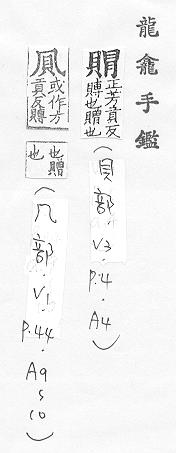 龍龕手鑑
正芳貢反
賻也贈也
(貝部.V3.P.4.A4)
或作方
貢反賻
也贈
也
(几部.V1.P.44.A9～10)